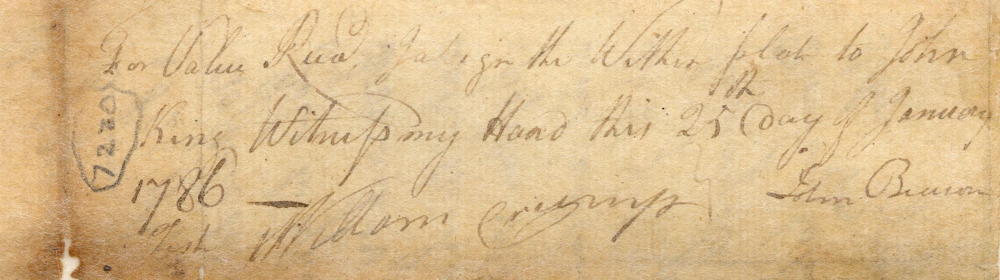 For Value Recd. I asign the Within plat to John
King Witness my Hand this 25th day of January
1786 John
Test William
7220